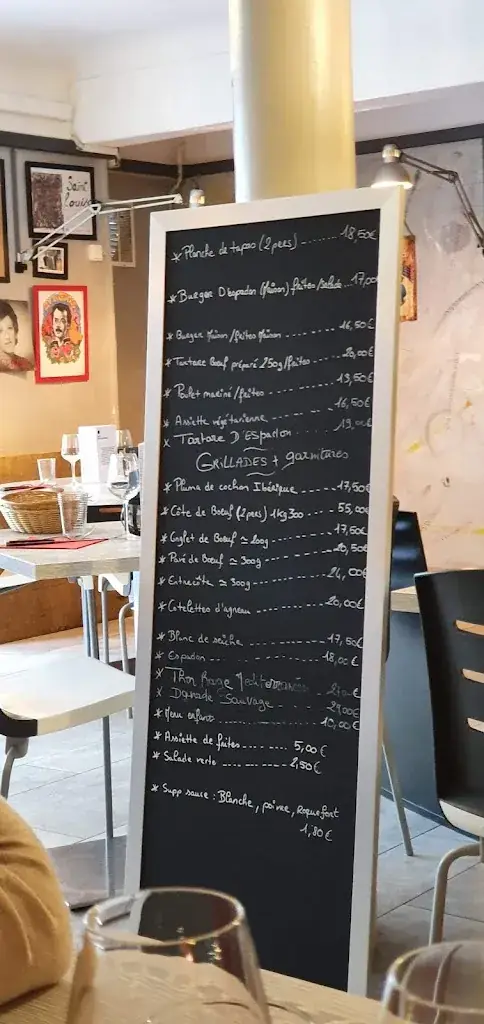 Saint
Louis
* Planche de tapas (2pers) ------- 18,50€
* Burger D'Espadon (Maison) frites/salade ... 17,00
* Burger Maison/frites Maison -------- 16,50€
* Tartare Bœuf préparé 250g/frites ----- 20,00€
* Poulet mariné/frites -------- 13,50€
* Assiette végétarienne ------ 16,50€
x Tartare D'Espadon ------ 19,00€
GRILLADES + garnitures
* Pluma de cochon Ibérique ------- 17,50€
* Côte de Bœuf (2pers) 1kg300 ----- 55,00
* Onglet de Bœuf ≈ 200g ------- 17,50€
* Pavé de Bœuf ≈ 300g ------- 20,50€
* Entrecôte ≈ 300g ------- 24,00€
* Cotelettes d'agneau ------- 20,00€
* Blanc de seiche ------- 17,50€
* Espadon ------- 18,00€
x Thon Rouge Méditerranée
x Daurade Sauvage
* Menu enfants ------- 10,00€
* Assiette de frites ------- 5,00€
* Salade verte ------- 2,50€
* Supp sauce : Blanche, poivre, roquefort
1,80€